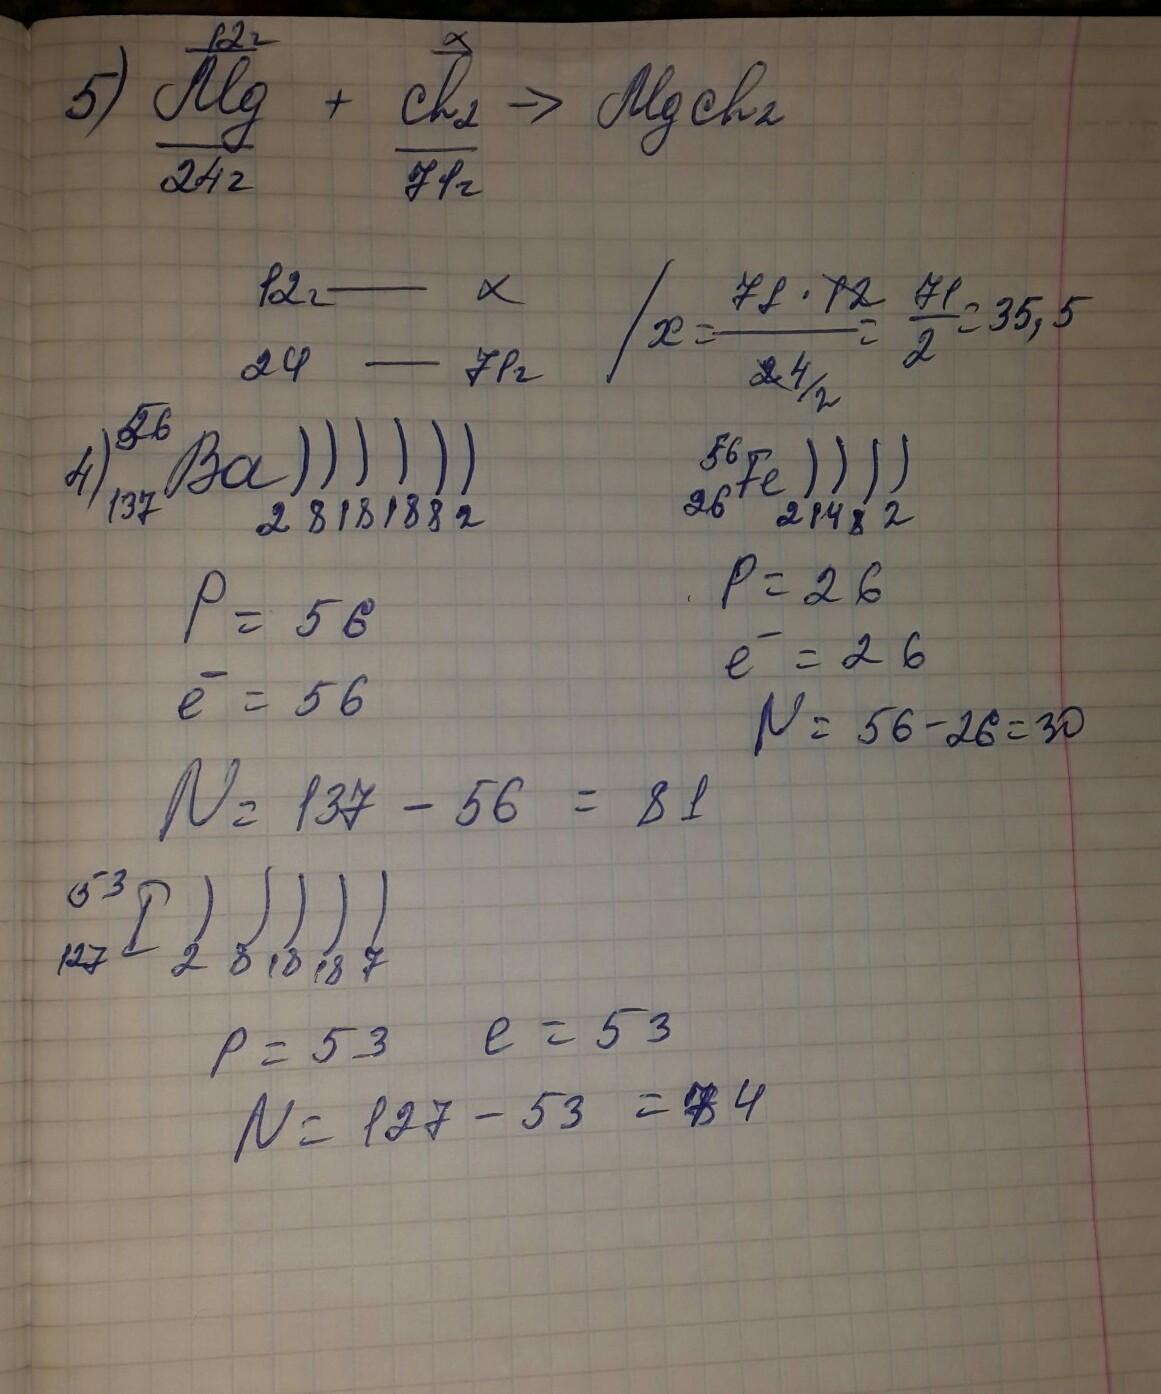 12г x
5) Mg + Ch2 → MgCh2
24г 71г
12г — x / x = 71 · 12 = 71 = 35,5
24 — 71г 24/2 2
4) 56 Ba ) ) ) ) ) ) 56 Fe ) ) ) )
137 2 8 18 18 8 2 26 2 14 8 2
P = 56 P = 26
e⁻ = 56 e⁻ = 26
N = 56 - 26 = 30
N = 137 - 56 = 81
53 I ) ) ) ) )
127 2 8 18 18 7
P = 53 e = 53
N = 127 - 53 = 74